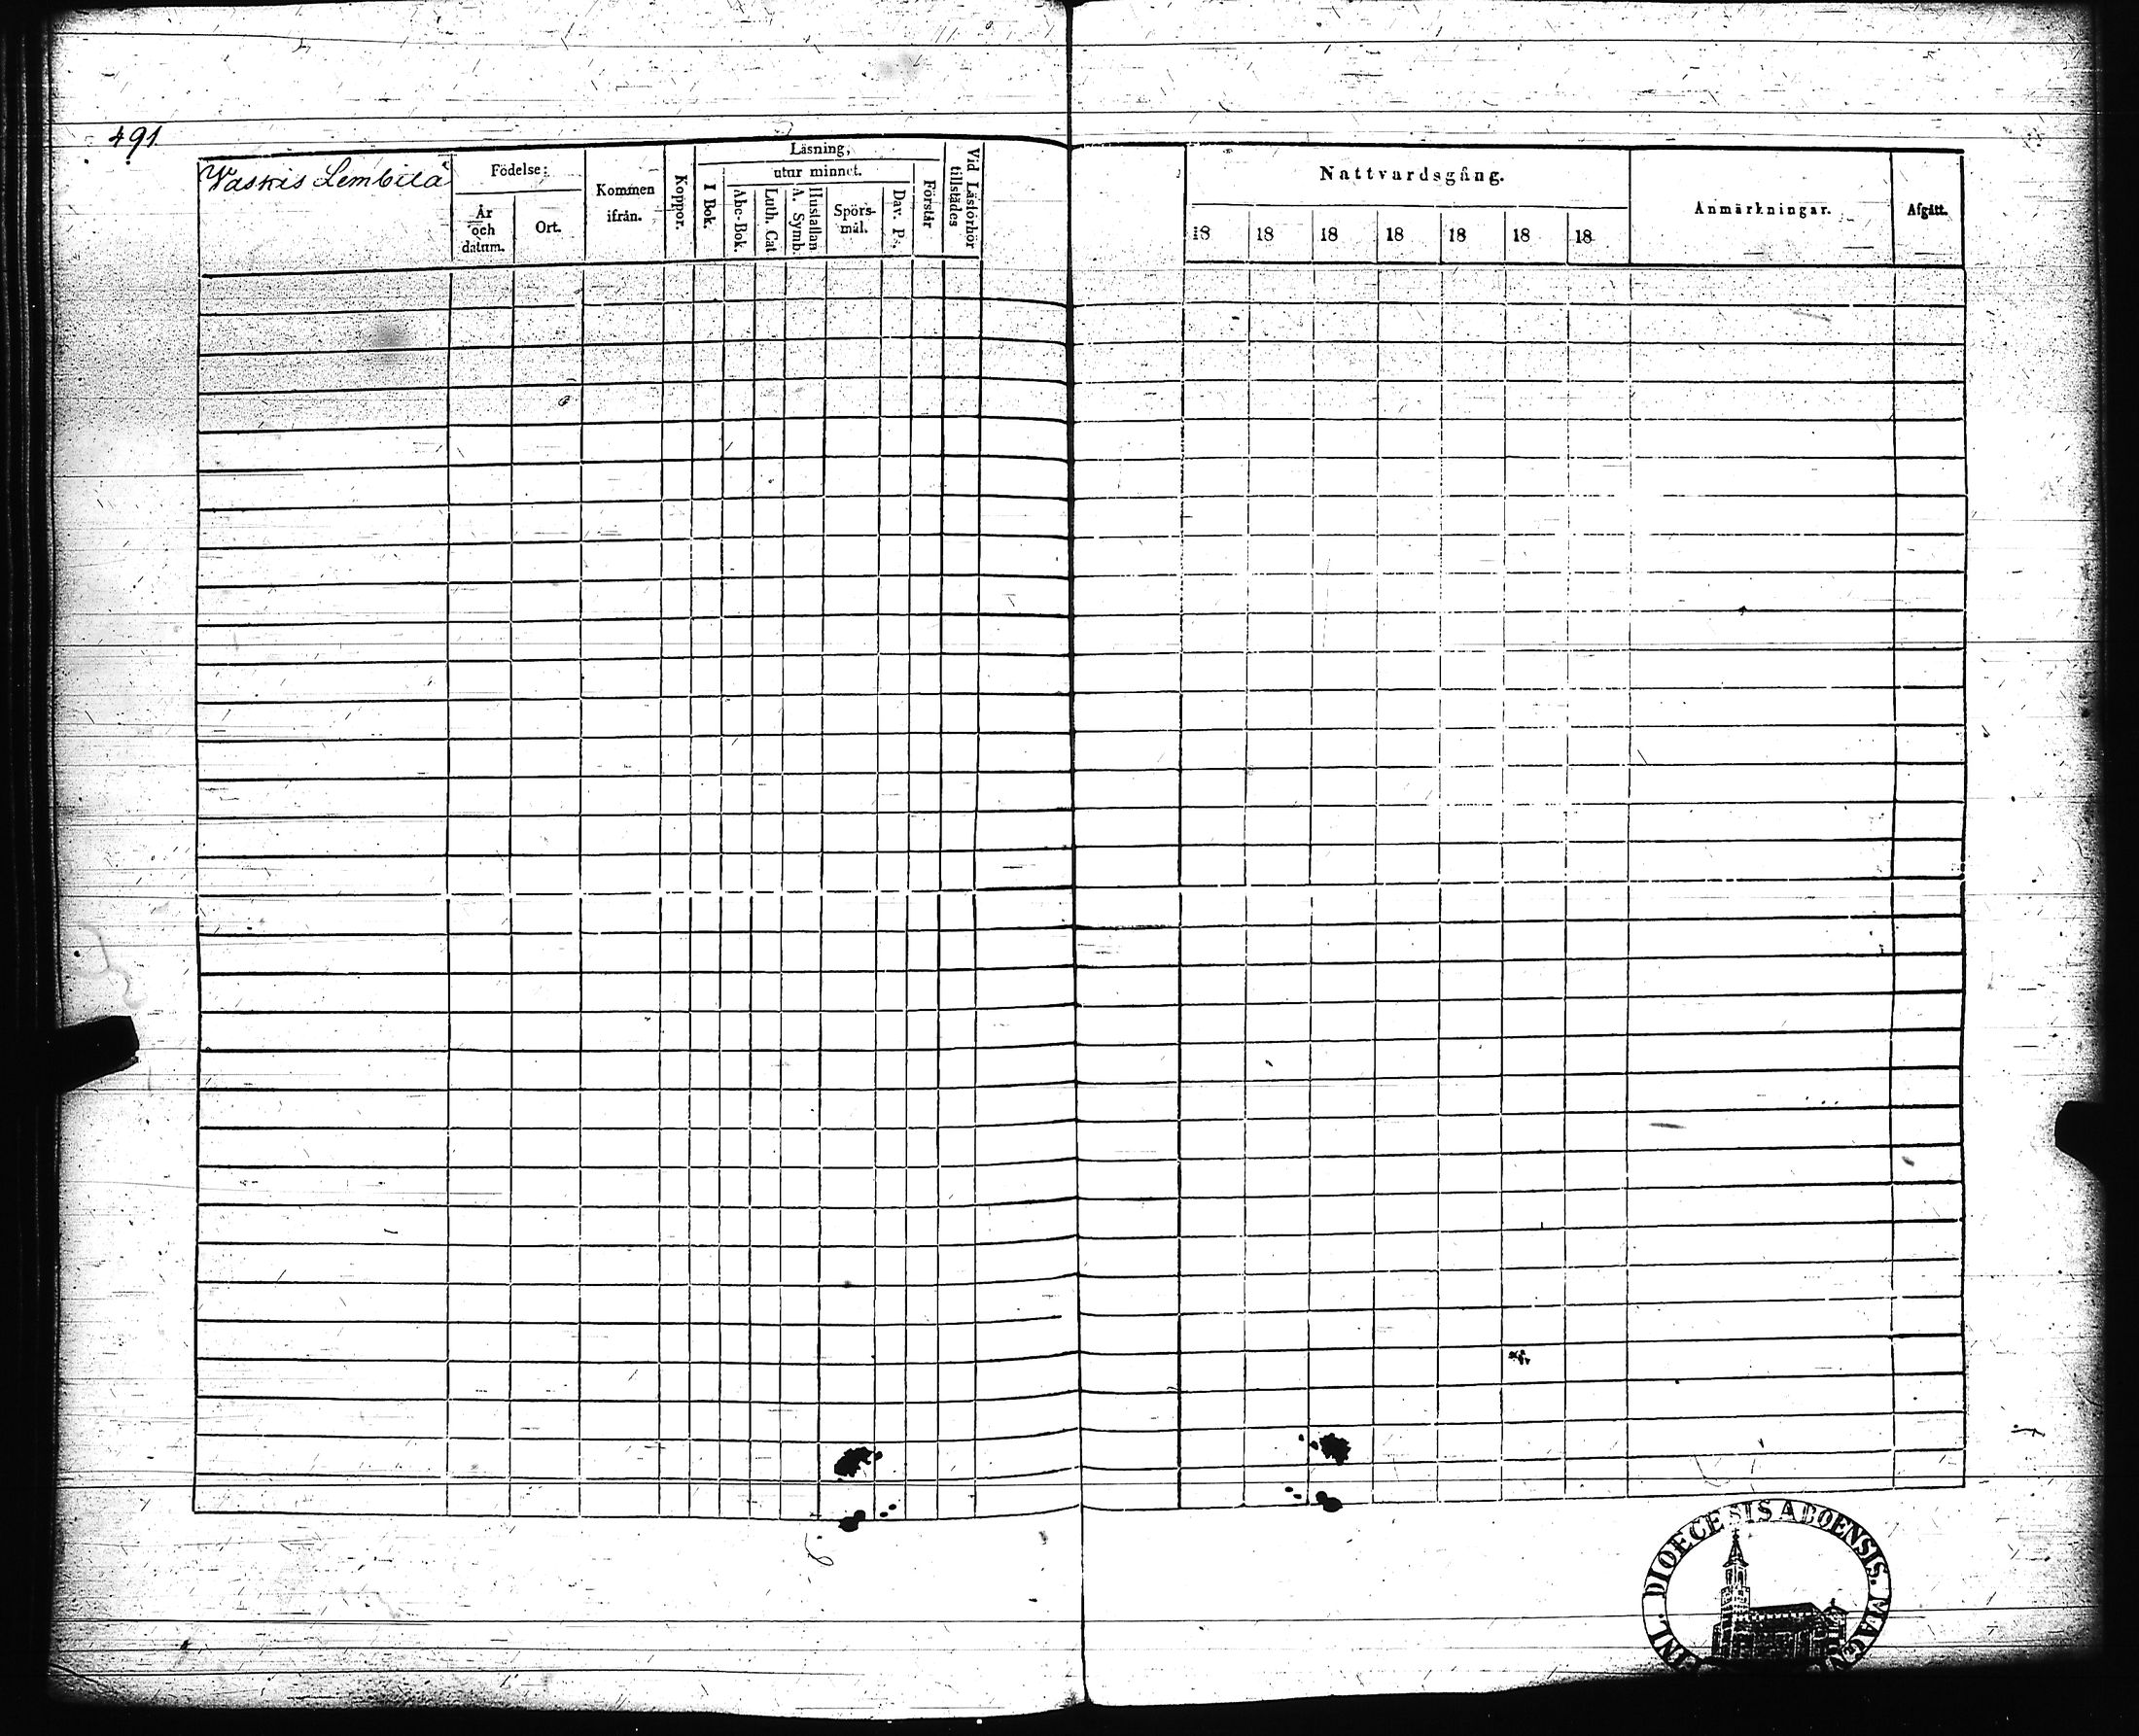 491.
Waskis Lembilä
Födelse:
År
och
datum.
Ort.
Kommen
ifrån.
Koppor.
Läsning,
utur minnet.
I Bok.
Abc-Bok.
Luth. Cat
A. Symb.
Hustaflan
Spörs-
mål.
Dav. Ps.
Förstår
Vid Läsförhör
tillstädes
Nattvardsgång.
18 18 18 18 18 18 18
Anmärkningar.
Afgått.
DIOECESIS ABOENSIS. MAGNI